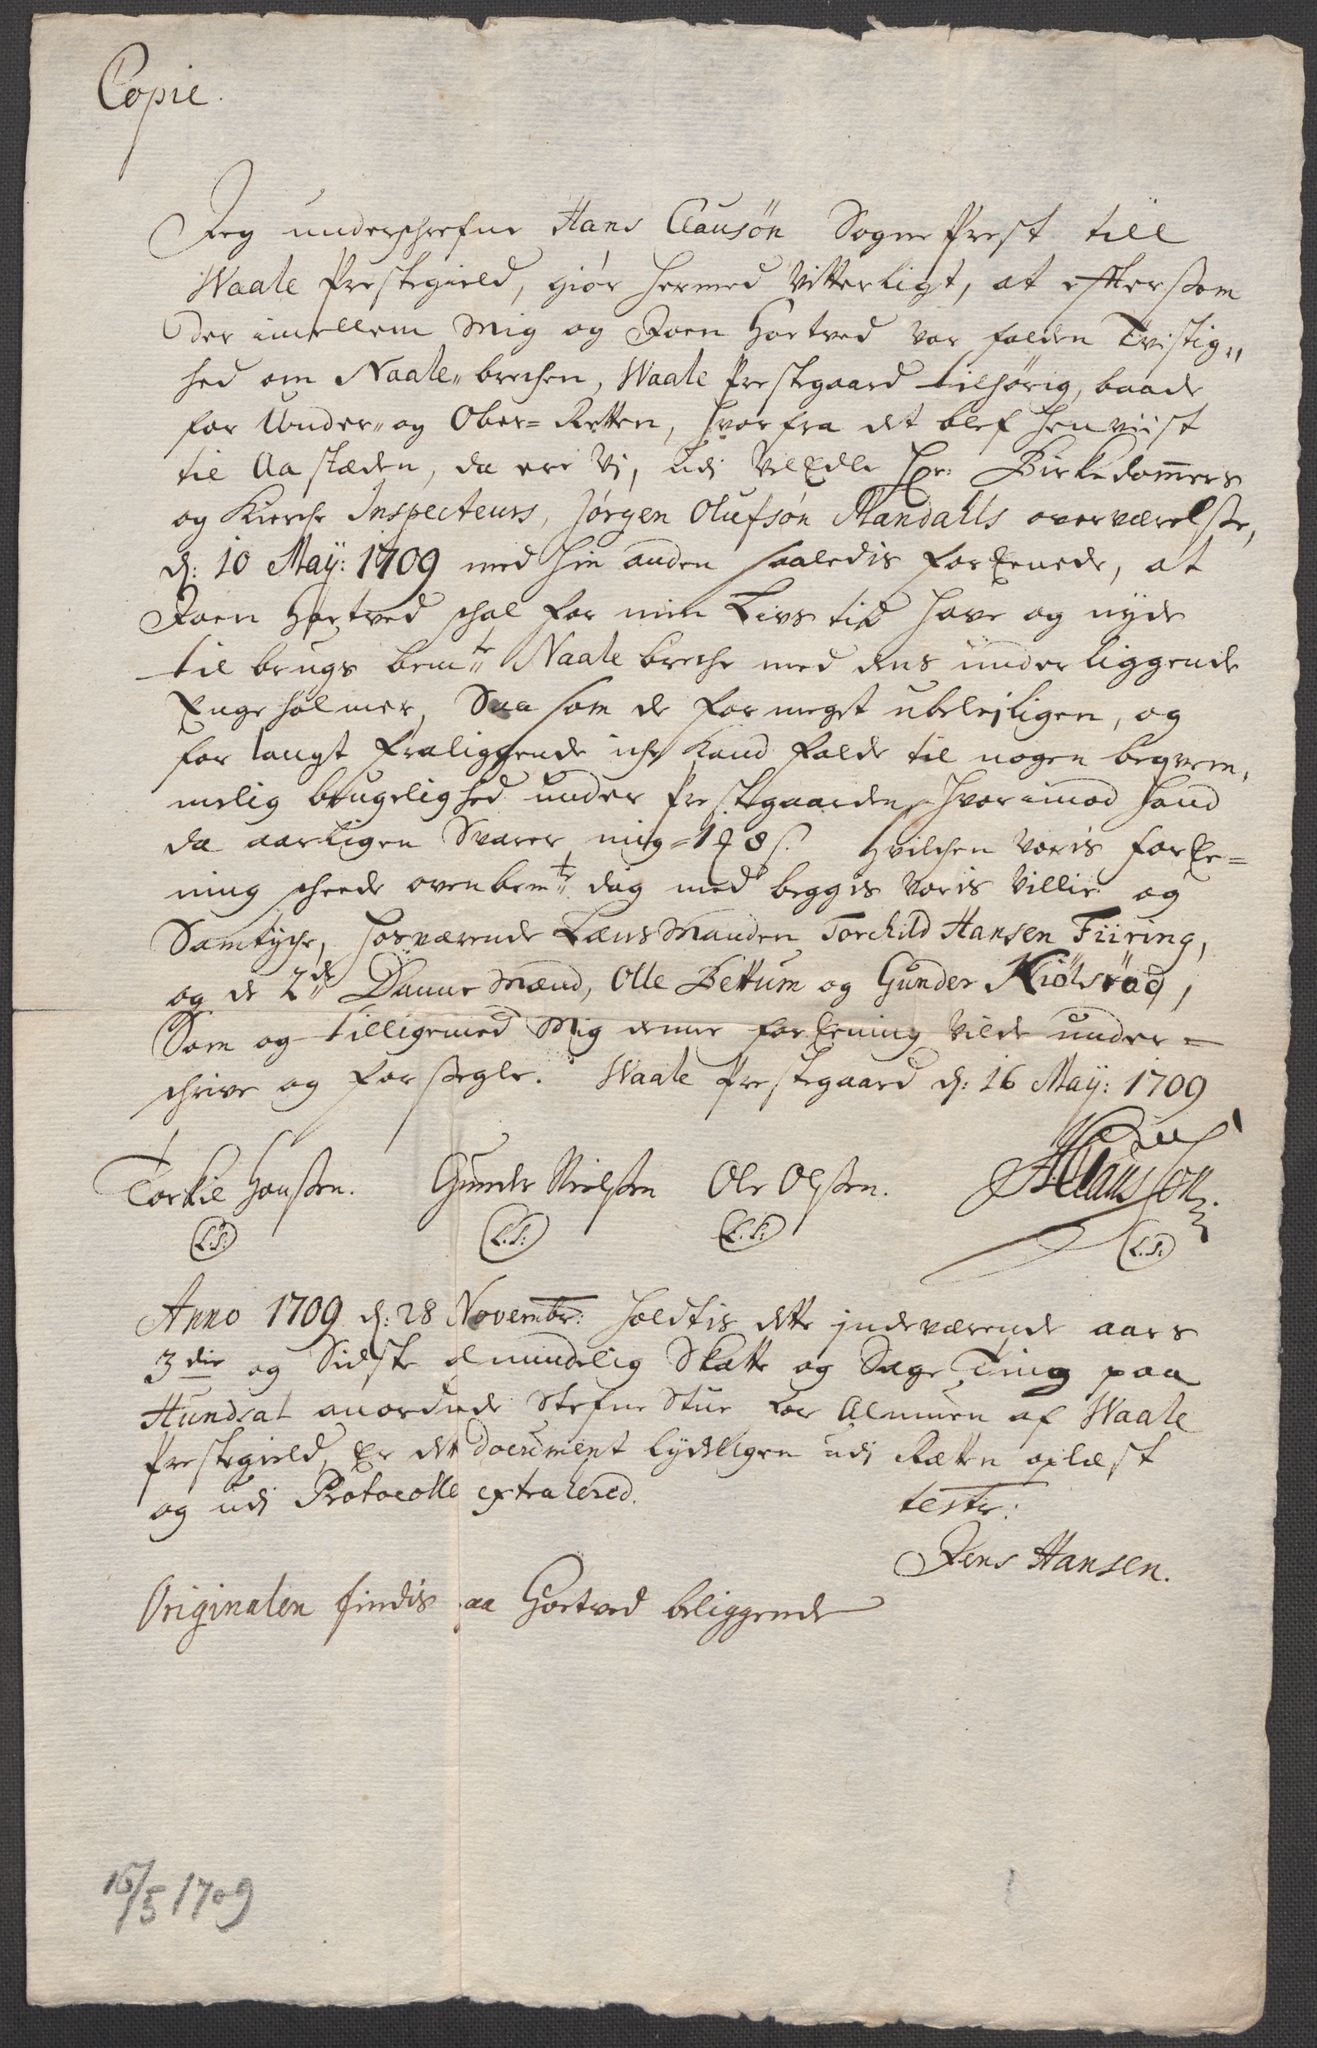 Copie.
Jeg underschrefne Hans Clausøn Sogne Prest till
Waale Prestegield, giør hermed Vitterligt, at eftersom
der imellem Mig og Joen Hortved var falden Tvistig„
hed om Naale„brechen, Waale Prestegaard tilhørig, baade
for Under„ og Ober= Retten, hvorfra det blef henviist
til Aastæden, da ere Vj, udj VelEdle Hr: Birkedom̄ers
og Kierche Inspecteurs, Jørgen Olufsøn Mandahls overværelsse,
d: 10 Maÿ: 1709 med hin anden saaledis forEenede, at
Joen Hortved schal for min Livs tid have og nyde
til brugs bemte Naale breche med dens underliggende
Enge holmer, Saasom de formegst ubelejligen, og
for langt fraliggende iche kand falde til nogen beqvem„
melig brugelighed under Prestegaarden, hvorimod hand
da aarligen Svarer mig = 1 8 s. Hvilchen voris forEe=
ning scheede ovenbemte dag med beggis voris villie og
Samtyche, hosværende LænsManden Torchild Hansen Fiiring,
og de 2de Danne Mænd, Olle Bettum og Gunder Kiølsrød,
Som og tilligemed Mig denne forEening vilde under=
schrive og forsegle. Waale Prestegaard d: 16 Maÿ: 1709
Torkil Hanssen. Gunder Nielssen Ole Olssen. HClausson
L.S: L.S: L.S: L.S:
Anno 1709 d: 28 Novembr: holdtis dette indeværende aars
3die og Sidste almindelig Skatte og Sage Ting paa
Hundsal anordnede Stefne Stue for Almuen af Waale
Prestegield, Er dette Document lydeligen udj Retten oplæst
og udj Protocolle extrahered.
testr:
Jens Hansen.
Originalen findis paa Hortved beliggende
16/5 1709